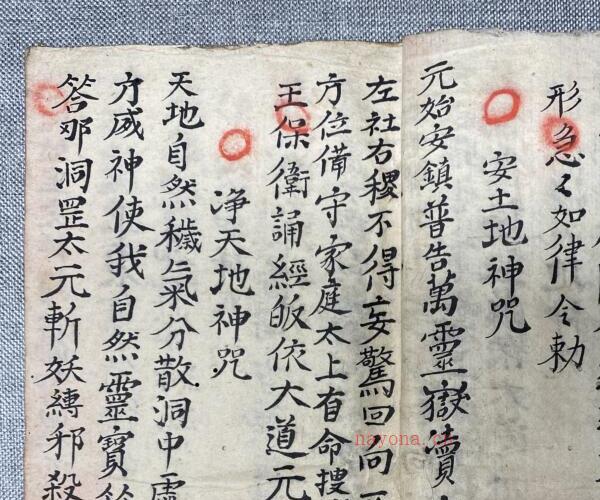 形急々如律令勅
安土地神咒
元始安鎮普告萬靈嶽瀆
左社右稷不得妄驚回向
方位備守家庭太上有命搜
王保衛誦經皈依大道元
净天地神咒
天地自然穢氣分散洞中虛
方威神使我自然靈寶
答那洞罡太元斬妖縛邪殺
nayona.cn